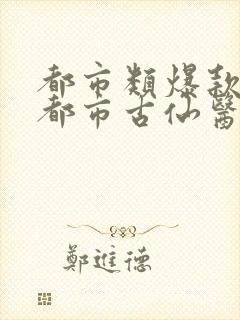 都市類爆款
都市古仙醫
鄭進德